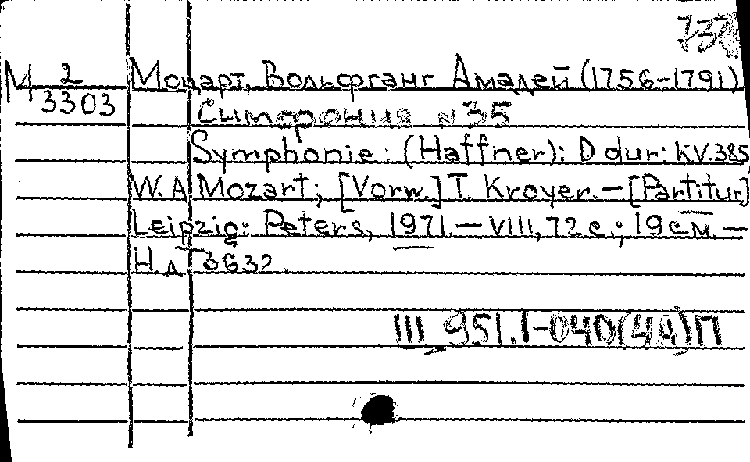 737
М 2/3303
Моцарт, Вольфганг Амадей (1756-1791)
Симфония №35
Symphonie: (Haffner): D dur: KV.385
W. A. Mozart; [Vorw.] T. Kroyer. — [Partitur]
Leipzig: Peters, 1971. — VIII, 72 с.; 19 см. —
Н.д. 3632.
III 951.1-040(4А)П